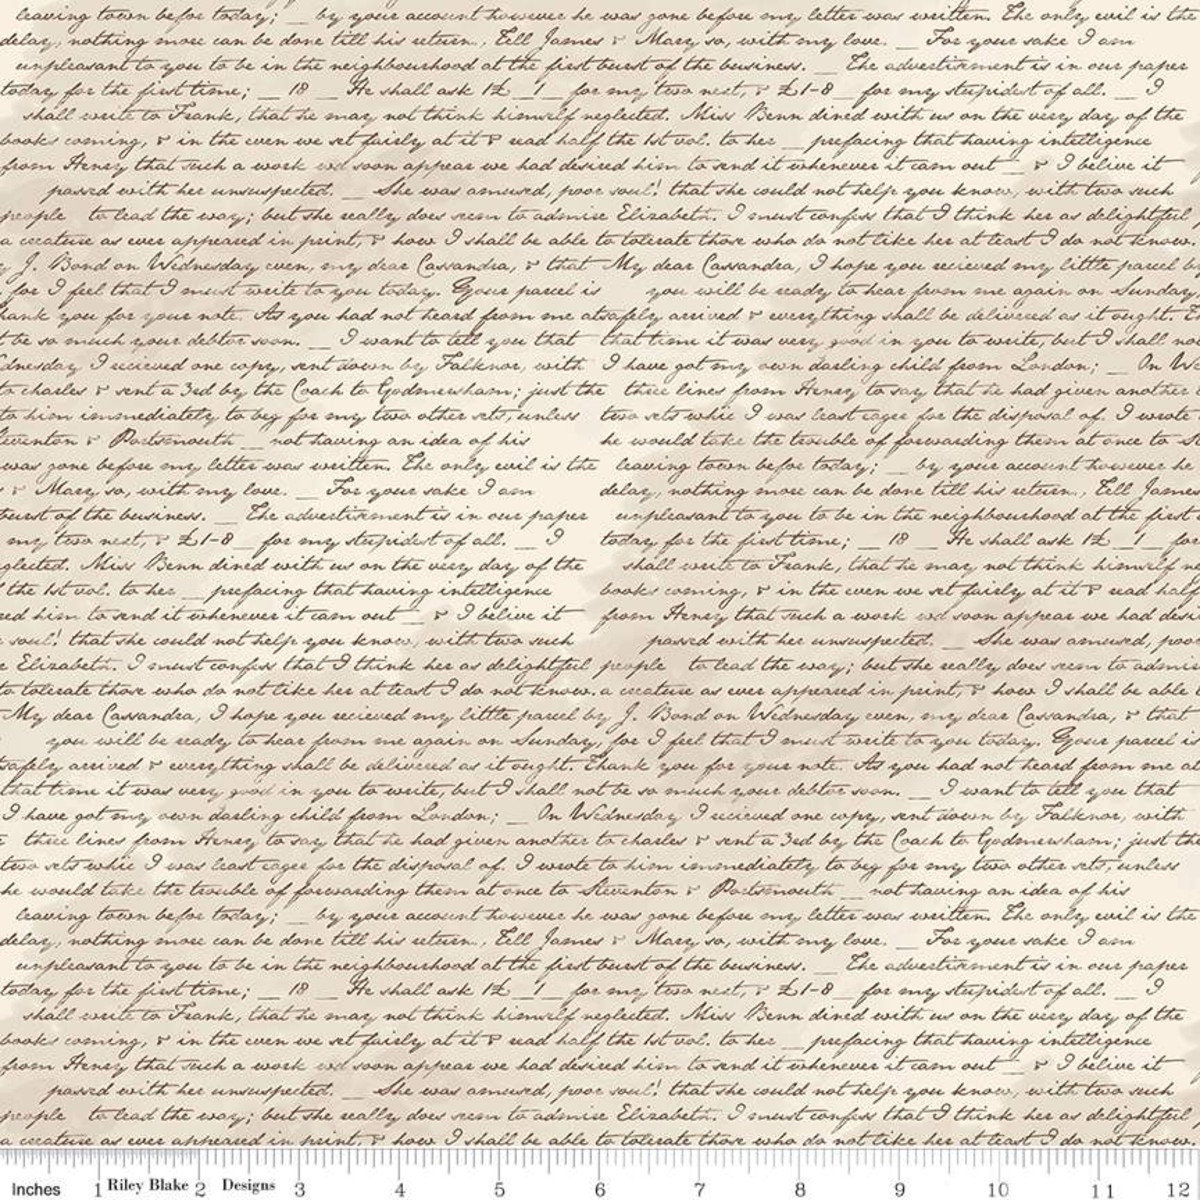 leaving town befor today; _ by your account however he was gone before my letter was written. The only evil is the
delay, nothing more can be done till his return., Tell James & Mary so, with my love. _ For your sake I am
unpleasant to you to be in the neighbourhood at the first burst of the business. _ The advertisment is in our paper
today for the first time; _ 18 _ He shall ask 1£ _1_ for my two next, & £1-8 _ for my stupidest of all. _ I
shall write to Frank, that he may not think himself neglected. Miss Benn dined with us on the very day of the
books coming, & in the even we set fairly at it & read half the 1st vol. to her _ prefacing that having intelligence
from Henry that such a work wd soon appear we had desired him to send it whenever it cam out _ & I belive it
passed with her unsuspected. _ She was amused, poor soul! that she could not help you know, with two such
people to lead the way; but she really does seem to admire Elizabeth. I must confess that I think her as delightful
a creature as ever appeared in print, & how I shall be able to tolerate those who do not like her at least I do not know.
y J. Bond on Wednesday even, my dear Cassandra, & that My dear Cassandra, I hope you recieved my little parcel b
for I feel that I must write to you today. Your parcel is you will be ready to hear from me again on Sunday,
hank you for your note. As you had not heard from me at safely arrived & everything shall be delivered as it ought.
t be so much your debtor soon. _ I want to tell you that that time it was very good in you to write, but I shall no
dnesday I recieved one copy, sent down by Falknor, with I have got my own darling child from London; _ On We
to charles & sent a 3rd by the Coach to Godmersham; just the three lines from Henry to say that he had given another
to him immediately to beg for my two other sets, unless two sets whic I was least eager for the disposal of. I wrote
teventon & Portsmouth _ not having an idea of his he would take the trouble of forwarding them at once to St
was gone before my letter was written. The only evil is the leaving town befor today; _ by your account however he
& Mary so, with my love. _ For your sake I am delay, nothing more can be done till his return., Tell James
burst of the business. _ The advertisment is in our paper unpleasant to you to be in the neighbourhood at the first
my two next, & £1-8 _ for my stupidest of all. _ I today for the first time; _ 18 _ He shall ask 1£ _1_ for
glected. Miss Benn dined with us on the very day of the shall write to Frank, that he may not think himself ne
the 1st vol. to her _ prefacing that having intelligence books coming, & in the even we set fairly at it & read half
red him to send it whenever it cam out _ & I belive it from Henry that such a work wd soon appear we had desi
soul! that she could not help you know, with two such passed with her unsuspected. _ She was amused, poor
e Elizabeth. I must confess that I think her as delightful people to lead the way; but she really does seem to admir
to tolerate those who do not like her at least I do not know. a creature as ever appeared in print, & how I shall be able
My dear Cassandra, I hope you recieved my little parcel by J. Bond on Wednesday even, my dear Cassandra, & that
you will be ready to hear from me again on Sunday, for I feel that I must write to you today. Your parcel is
safely arrived & everything shall be delivered as it ought. Thank you for your note. As you had not heard from me at
that time it was very good in you to write, but I shall not be so much your debtor soon. _ I want to tell you that
I have got my own darling child from London; _ On Wednesday I recieved one copy, sent down by Falknor, with
three lines from Henry to say that he had given another to charles & sent a 3rd by the Coach to Godmersham; just the
two sets whic I was least eager for the disposal of. I wrote to him immediately to beg for my two other sets, unless
he would take the trouble of forwarding them at once to Steventon & Portsmouth _ not having an idea of his
leaving town befor today; _ by your account however he was gone before my letter was written. The only evil is the
delay, nothing more can be done till his return., Tell James & Mary so, with my love. _ For your sake I am
unpleasant to you to be in the neighbourhood at the first burst of the business. _ The advertisment is in our paper
today for the first time; _ 18 _ He shall ask 1£ _1_ for my two next, & £1-8 _ for my stupidest of all. _ I
shall write to Frank, that he may not think himself neglected. Miss Benn dined with us on the very day of the
books coming, & in the even we set fairly at it & read half the 1st vol. to her _ prefacing that having intelligence
from Henry that such a work wd soon appear we had desired him to send it whenever it cam out _ & I belive it
passed with her unsuspected. _ She was amused, poor soul! that she could not help you know, with two such
people to lead the way; but she really does seem to admire Elizabeth. I must confess that I think her as delightful
a creature as ever appeared in print, & how I shall be able to tolerate those who do not like her at least I do not know.
Inches 1 Riley Blake 2 Designs 3 4 5 6 7 8 9 10 11 12